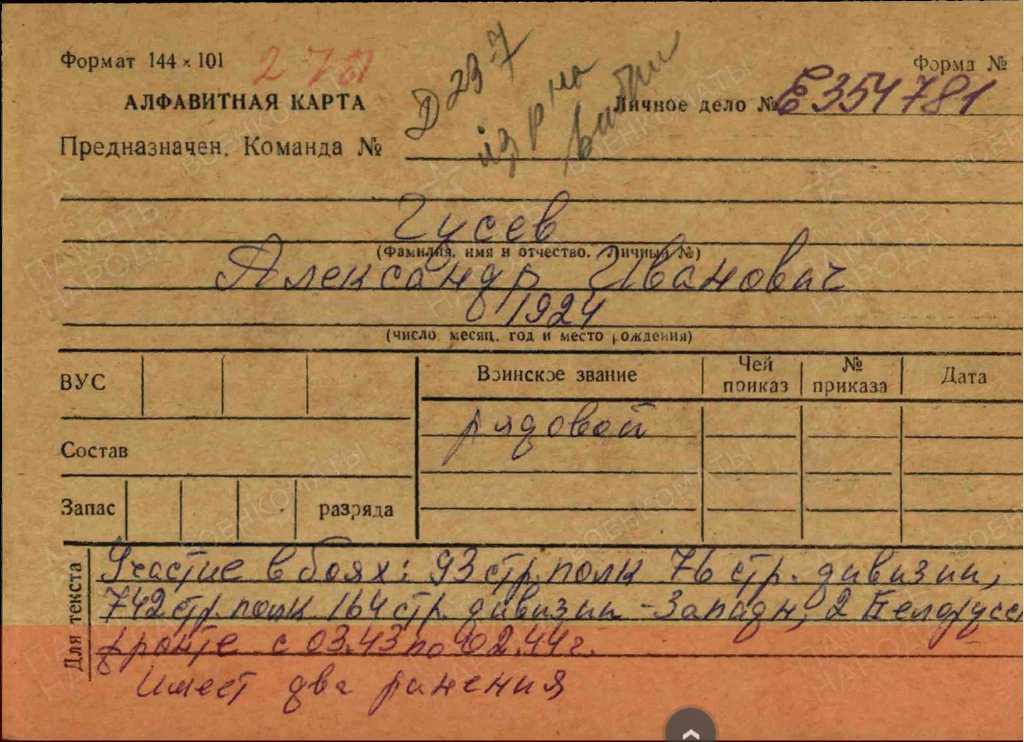 Формат 144 × 101
АЛФАВИТНАЯ КАРТА
Форма №
Личное дело № Е354781
Предназначен. Команда №
Д 237
Гусев
(Фамилия, имя и отчество. Личный №)
Александр Иванович
1924
(число, месяц, год и место рождения)
ВУС
Воинское звание
Чей приказ
№ приказа
Дата
рядовой
Состав
Запас
разряда
Для текста
Участие в боях: 93 стр. полк 76 стр. дивизии,
742 стр. полк 164 стр. дивизии - Западн, 2 Белорусс
фронте с 03.43 по 02.44 г.
Имеет два ранения